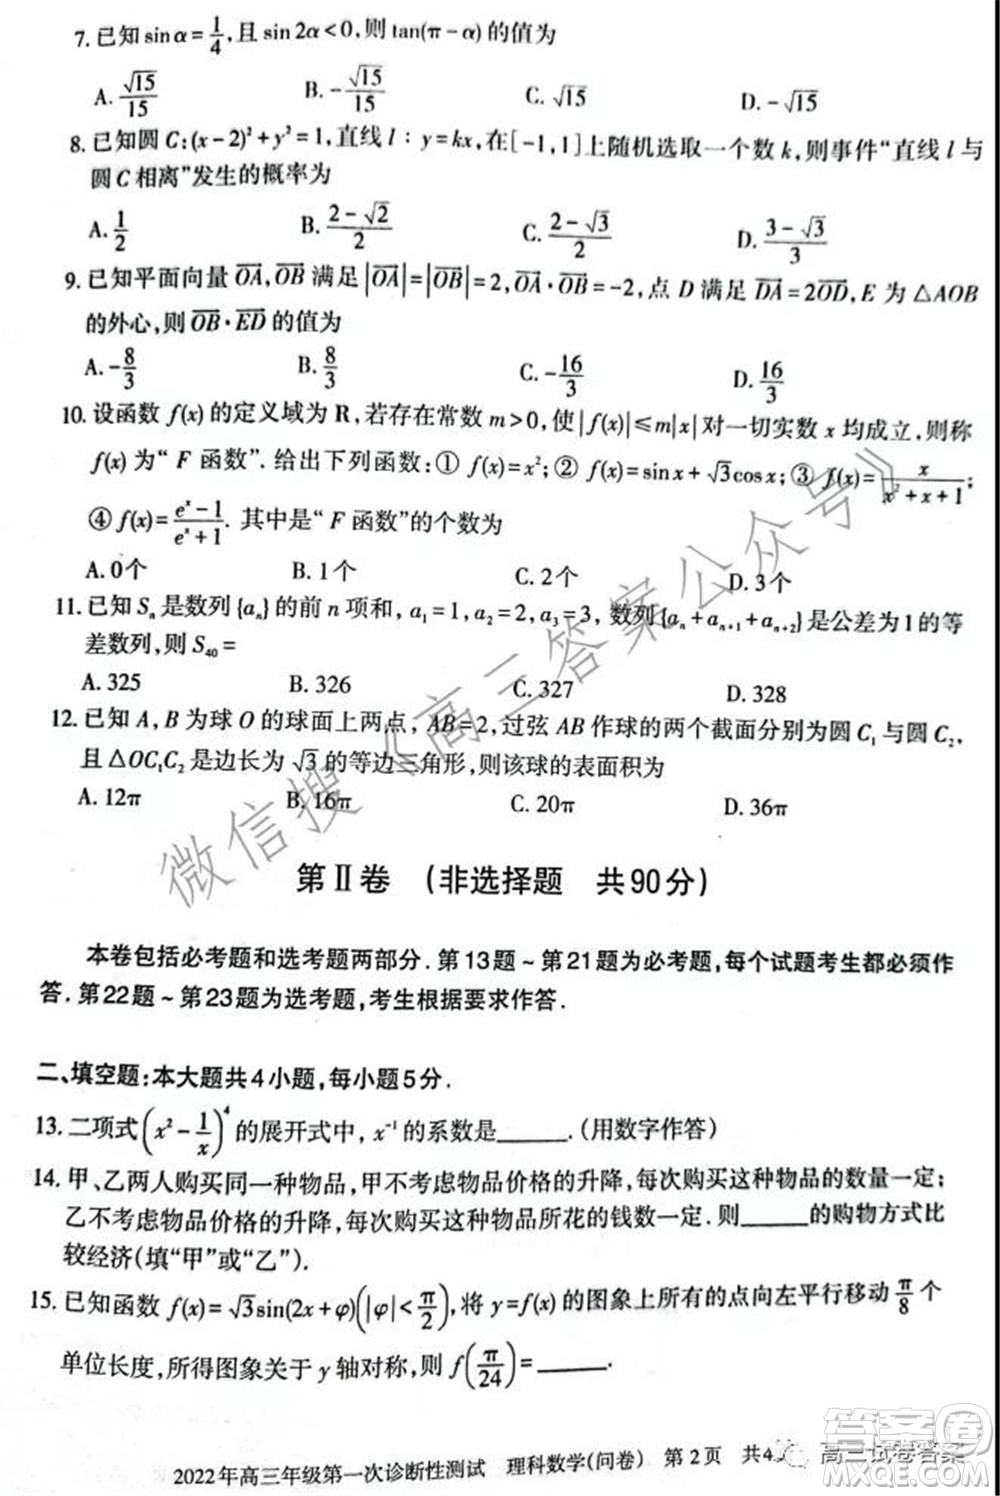 7. 已知 sin α = 1/4, 且 sin 2α < 0, 则 tan(π − α) 的值为
A. √15/15 B. −√15/15 C. √15 D. −√15
8. 已知圆 C: (x − 2)² + y² = 1, 直线 l : y = kx, 在 [−1, 1] 上随机选取一个数 k, 则事件“直线 l 与
圆 C 相离”发生的概率为
A. 1/2 B. (2 − √2)/2 C. (2 − √3)/2 D. (3 − √3)/3
9. 已知平面向量 \overrightarrow{OA}, \overrightarrow{OB} 满足 |\overrightarrow{OA}| = |\overrightarrow{OB}| = 2, \overrightarrow{OA} · \overrightarrow{OB} = −2, 点 D 满足 \overrightarrow{DA} = 2\overrightarrow{OD}, E 为 △AOB
的外心, 则 \overrightarrow{OB} · \overrightarrow{ED} 的值为
A. −8/3 B. 8/3 C. −16/3 D. 16/3
10. 设函数 f(x) 的定义域为 R, 若存在常数 m > 0, 使 |f(x)| ≤ m|x| 对一切实数 x 均成立, 则称
f(x) 为“ F 函数”. 给出下列函数: ① f(x) = x²; ② f(x) = sin x + √3 cos x; ③ f(x) = x/(x² + x + 1);
④ f(x) = (eˣ − 1)/(eˣ + 1). 其中是“ F 函数”的个数为
A. 0个 B. 1个 C. 2个 D. 3个
11. 已知 Sₙ 是数列 {aₙ} 的前 n 项和, a₁ = 1, a₂ = 2, a₃ = 3, 数列 {aₙ + aₙ₊₁ + aₙ₊₂} 是公差为1的等
差数列, 则 S₄₀ =
A. 325 B. 326 C. 327 D. 328
12. 已知 A, B 为球 O 的球面上两点, AB = 2, 过弦 AB 作球的两个截面分别为圆 C₁ 与圆 C₂,
且 △OC₁C₂ 是边长为 √3 的等边三角形, 则该球的表面积为
A. 12π B. 16π C. 20π D. 36π
第Ⅱ卷 (非选择题 共90分)
本卷包括必考题和选考题两部分. 第13题~第21题为必考题, 每个试题考生都必须作
答. 第22题~第23题为选考题, 考生根据要求作答.
二、填空题: 本大题共4小题, 每小题5分.
13. 二项式 (x² − 1/x)⁴ 的展开式中, x⁻¹ 的系数是______. (用数字作答)
14. 甲、乙两人购买同一种物品, 甲不考虑物品价格的升降, 每次购买这种物品的数量一定;
乙不考虑物品价格的升降, 每次购买这种物品所花的钱数一定. 则______的购物方式比
较经济(填“甲”或“乙”).
15. 已知函数 f(x) = √3 sin(2x + φ)(|φ| < π/2), 将 y = f(x) 的图象上所有的点向左平行移动 π/8 个
单位长度, 所得图象关于 y 轴对称, 则 f(π/24) = ______.
2022年高三年级第一次诊断性测试 理科数学(问卷) 第2页 共4
微信搜《高三答案公众号》
高三试卷答案
答案圈
MXQE.COM